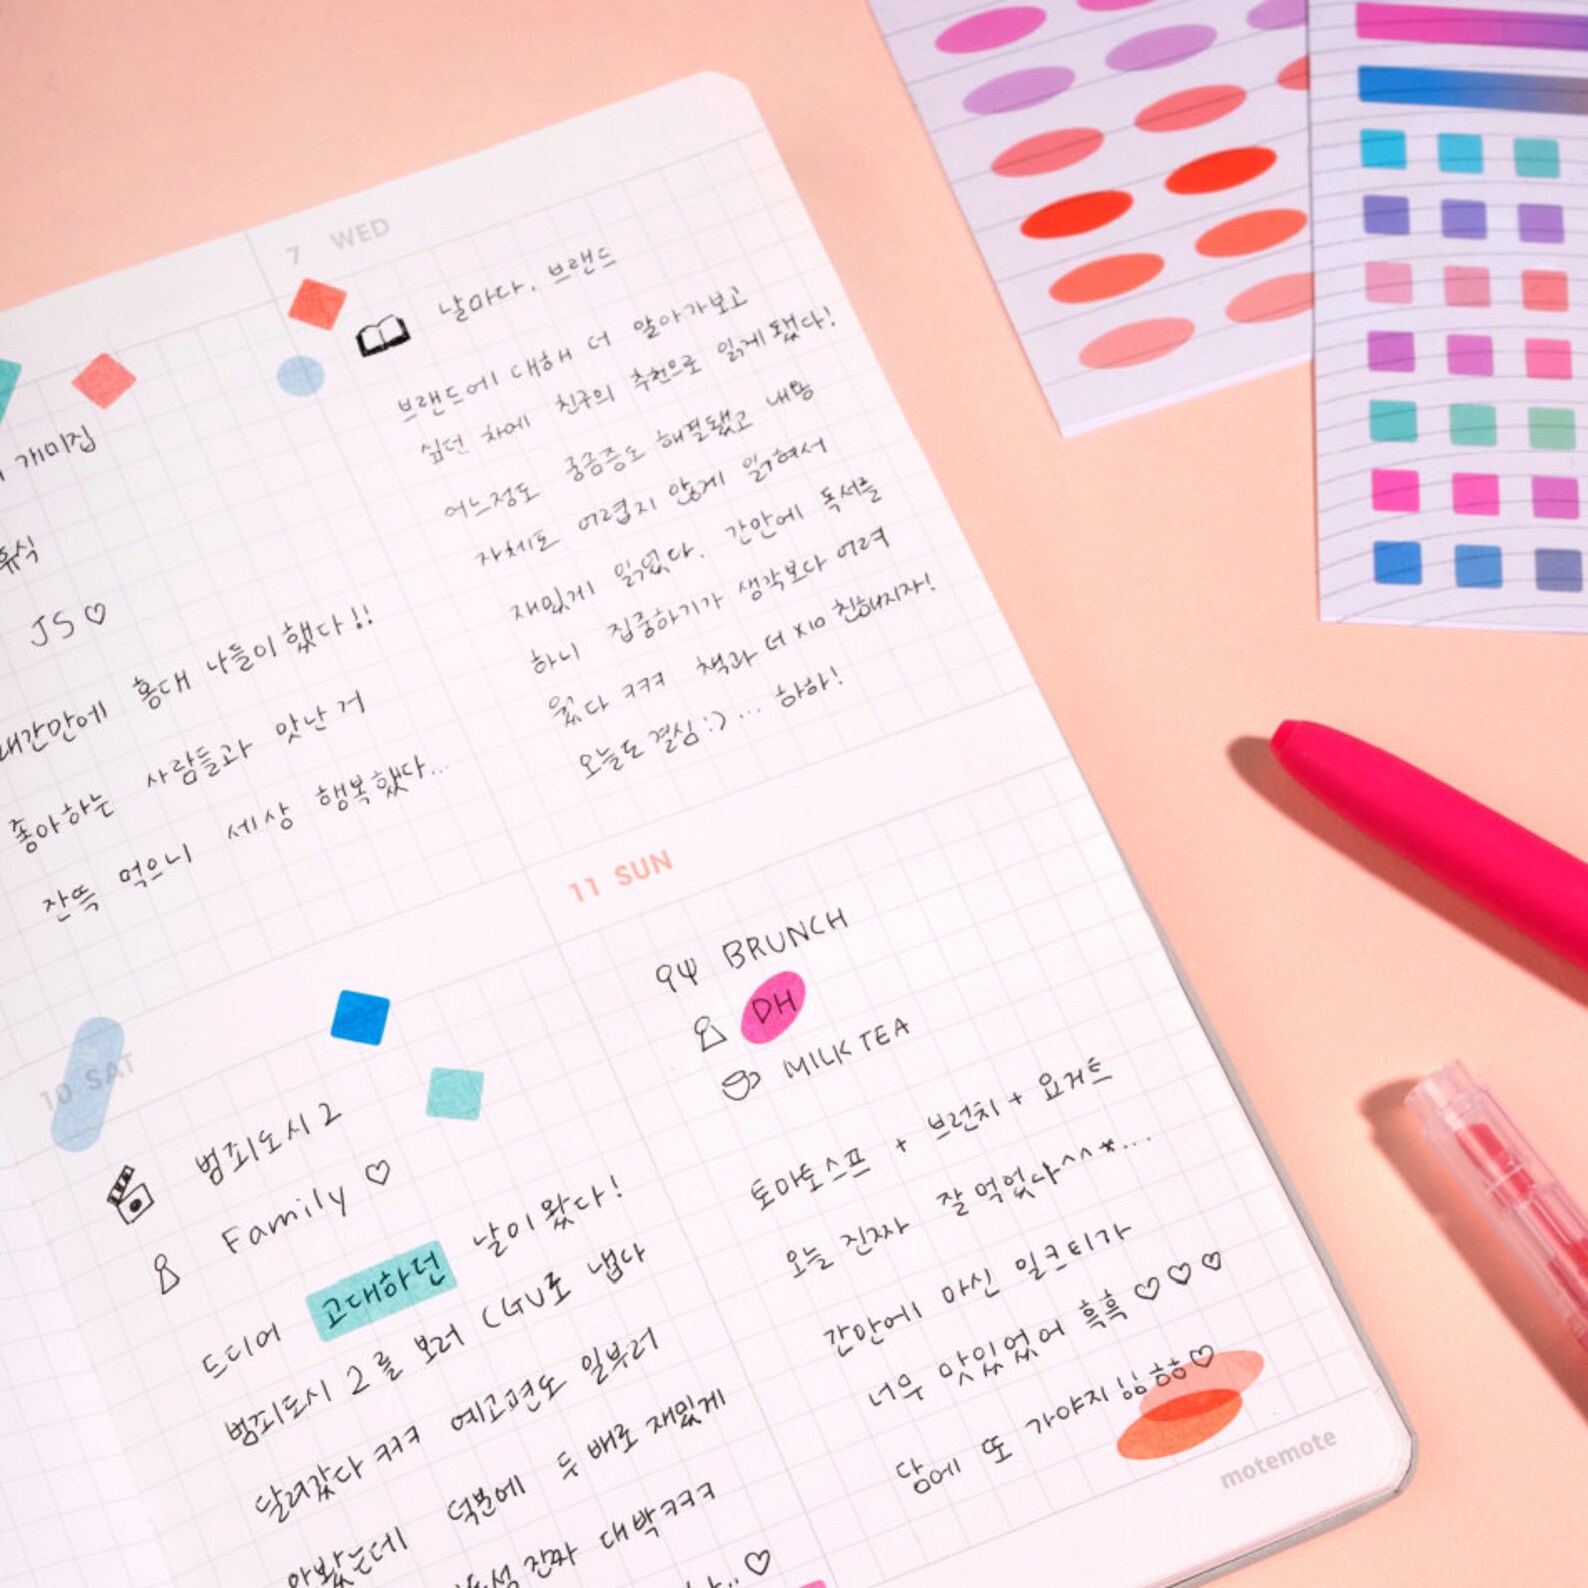 개미집
휴식
JS♡
홍대 나들이했다!!
좋아하는 사람들과 맛난거
잔뜩 먹으니 세상 행복했다...
7 WED
날마다, 브랜드
브랜드에 대해 더 알아가보고
싶던 차에 친구의 추천으로 읽게됐다!
어느정도 궁금증도 해결됐고 내용
자체도 어렵지 않게 읽혀서
재밌게 읽었다. 간만에 독서를
하니 집중하기가 생각보다 어려
웠다 ㅋㅋㅋ 책과 더 x10 친해지자!
오늘도 결심:)... 하하!
10 SAT
범죄도시2
Family ♡
드디어 고대하던 날이왔다!
범죄도시 2를 보러 CGV로 냅다
달려갔다 ㅋㅋㅋ 예고편도 일부러
안봤는데 덕분에 두 배로 재밌게
진짜 대박ㅋㅋㅋ
11 SUN
BRUNCH
DH
MILK TEA
토마토스프 + 브런치 + 요거트
오늘 진짜 잘먹었다^^*...
간만에 마신 밀크티가
너무 맛있었어 흑흑♡♡♡
담에 또 가야지
motemote